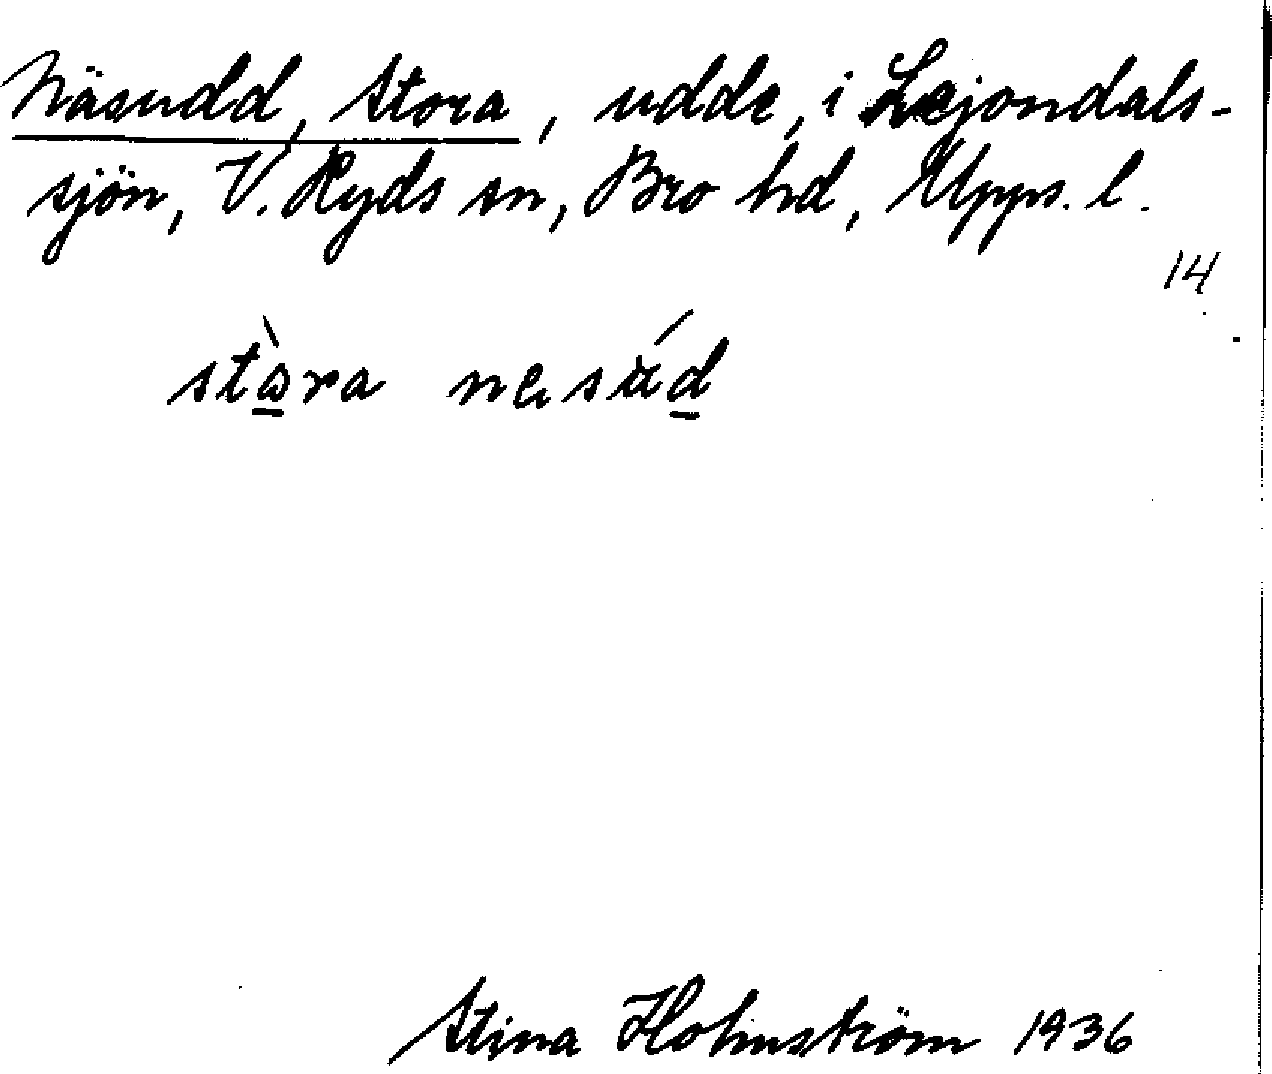 Näsudd, Stora, udde, i Lejondals-
sjön, V. Ryds sn, Bro hd, Upps. l.
14
stòra nesúd
Stina Holmström 1936